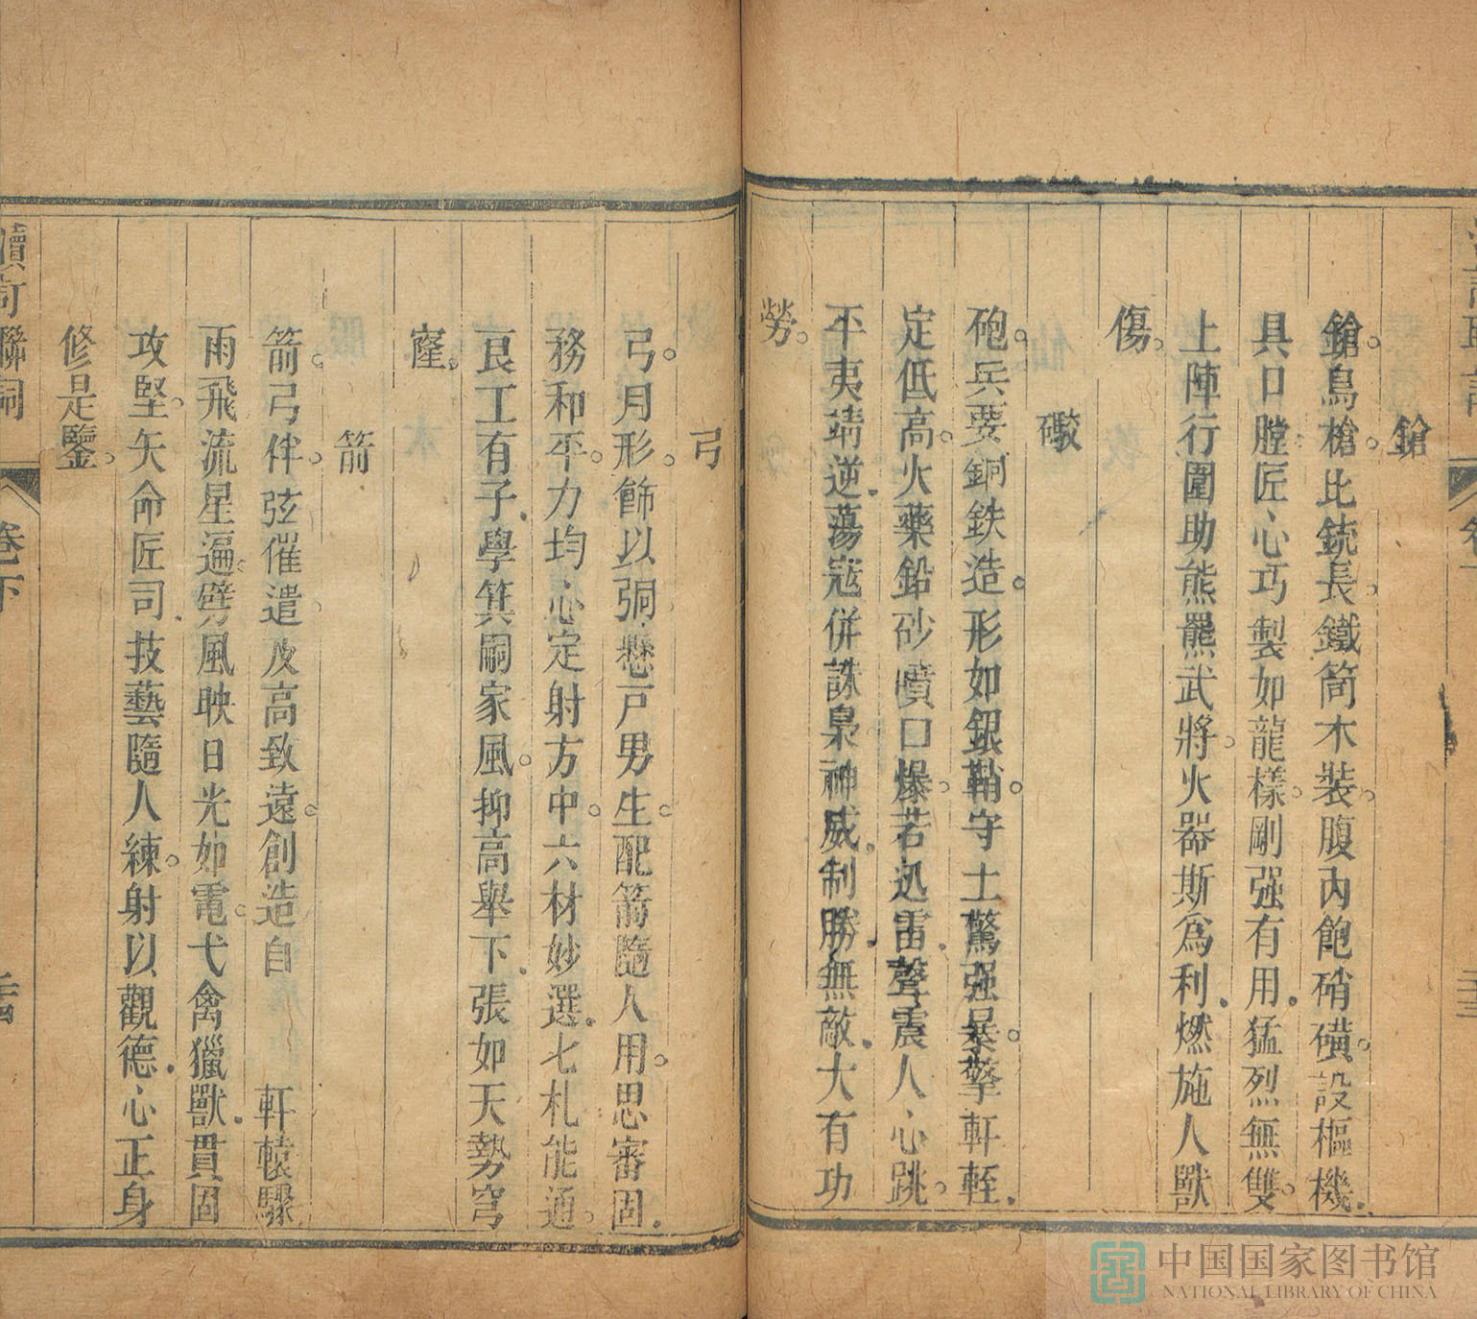 鎗
鎗鳥槍比銃長鐵筒木裝腹內飽硝磺設樞機
具口膛匠心巧製如龍樣剛强有用猛烈無雙
上陣行圍助熊羆武將火器斯為利燃施人獸
傷
礮
砲兵要銅鉄造形如銀鞘守土驚强暴擎軒輊
定低高火藥鉛砂噴口爆若迅雷聲震人心跳
平夷靖逆蕩寇併誅梟神威制勝無敵大有功
勞
弓
弓月形飾以弰懸戸男生配箭隨人用思審固
務和平力均心定射方中六材妙選七札能通
良工有子學箕嗣家風抑高舉下張如天勢穹
窿
箭
箭弓伴弦催遣及高致遠創造自 軒轅驟
雨飛流星遍劈風映日光如電弋禽獵獸貫固
攻堅矢命匠司技藝隨人練射以觀德心正身
修是鑒
聯詞
卷下
中国国家图书馆
NATIONAL LIBRARY OF CHINA